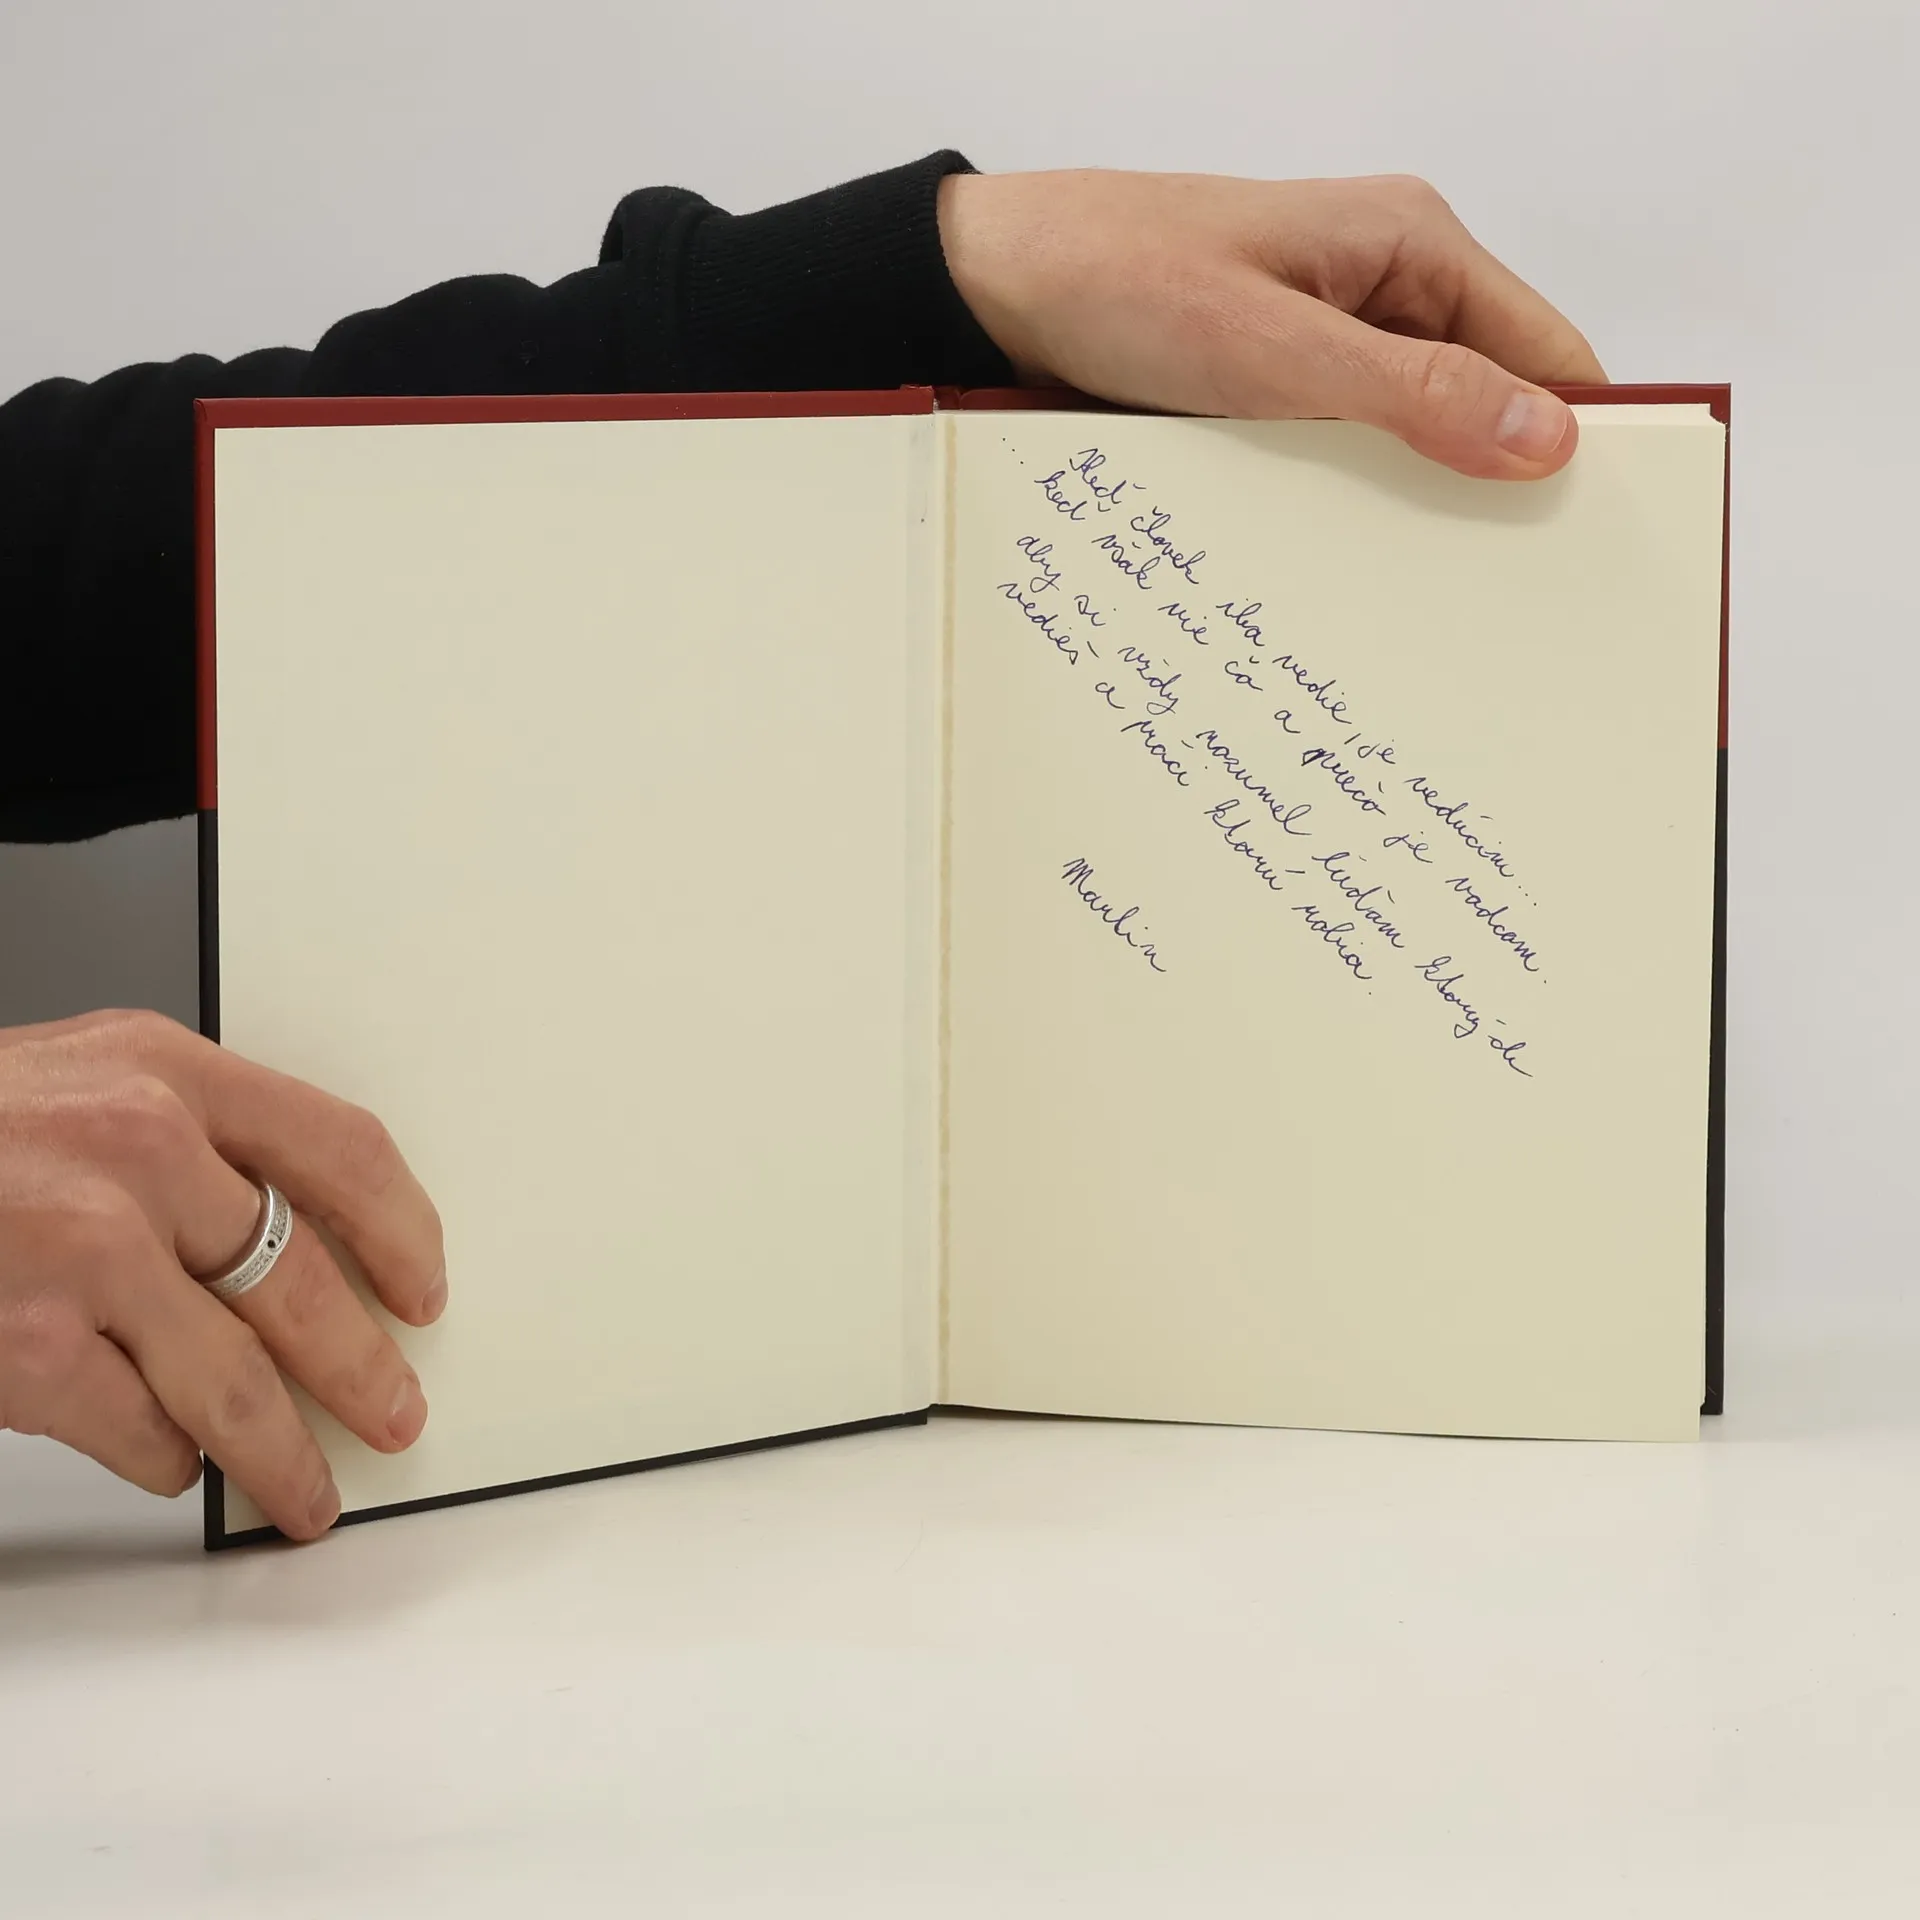 ... Keď človek iba vedie, je vedúcim...
keď však vie čo a prečo je vodcom.
aby si vždy rozumel ľuďom ktorý-ch
vedieš a práci ktorú robia.
Martin